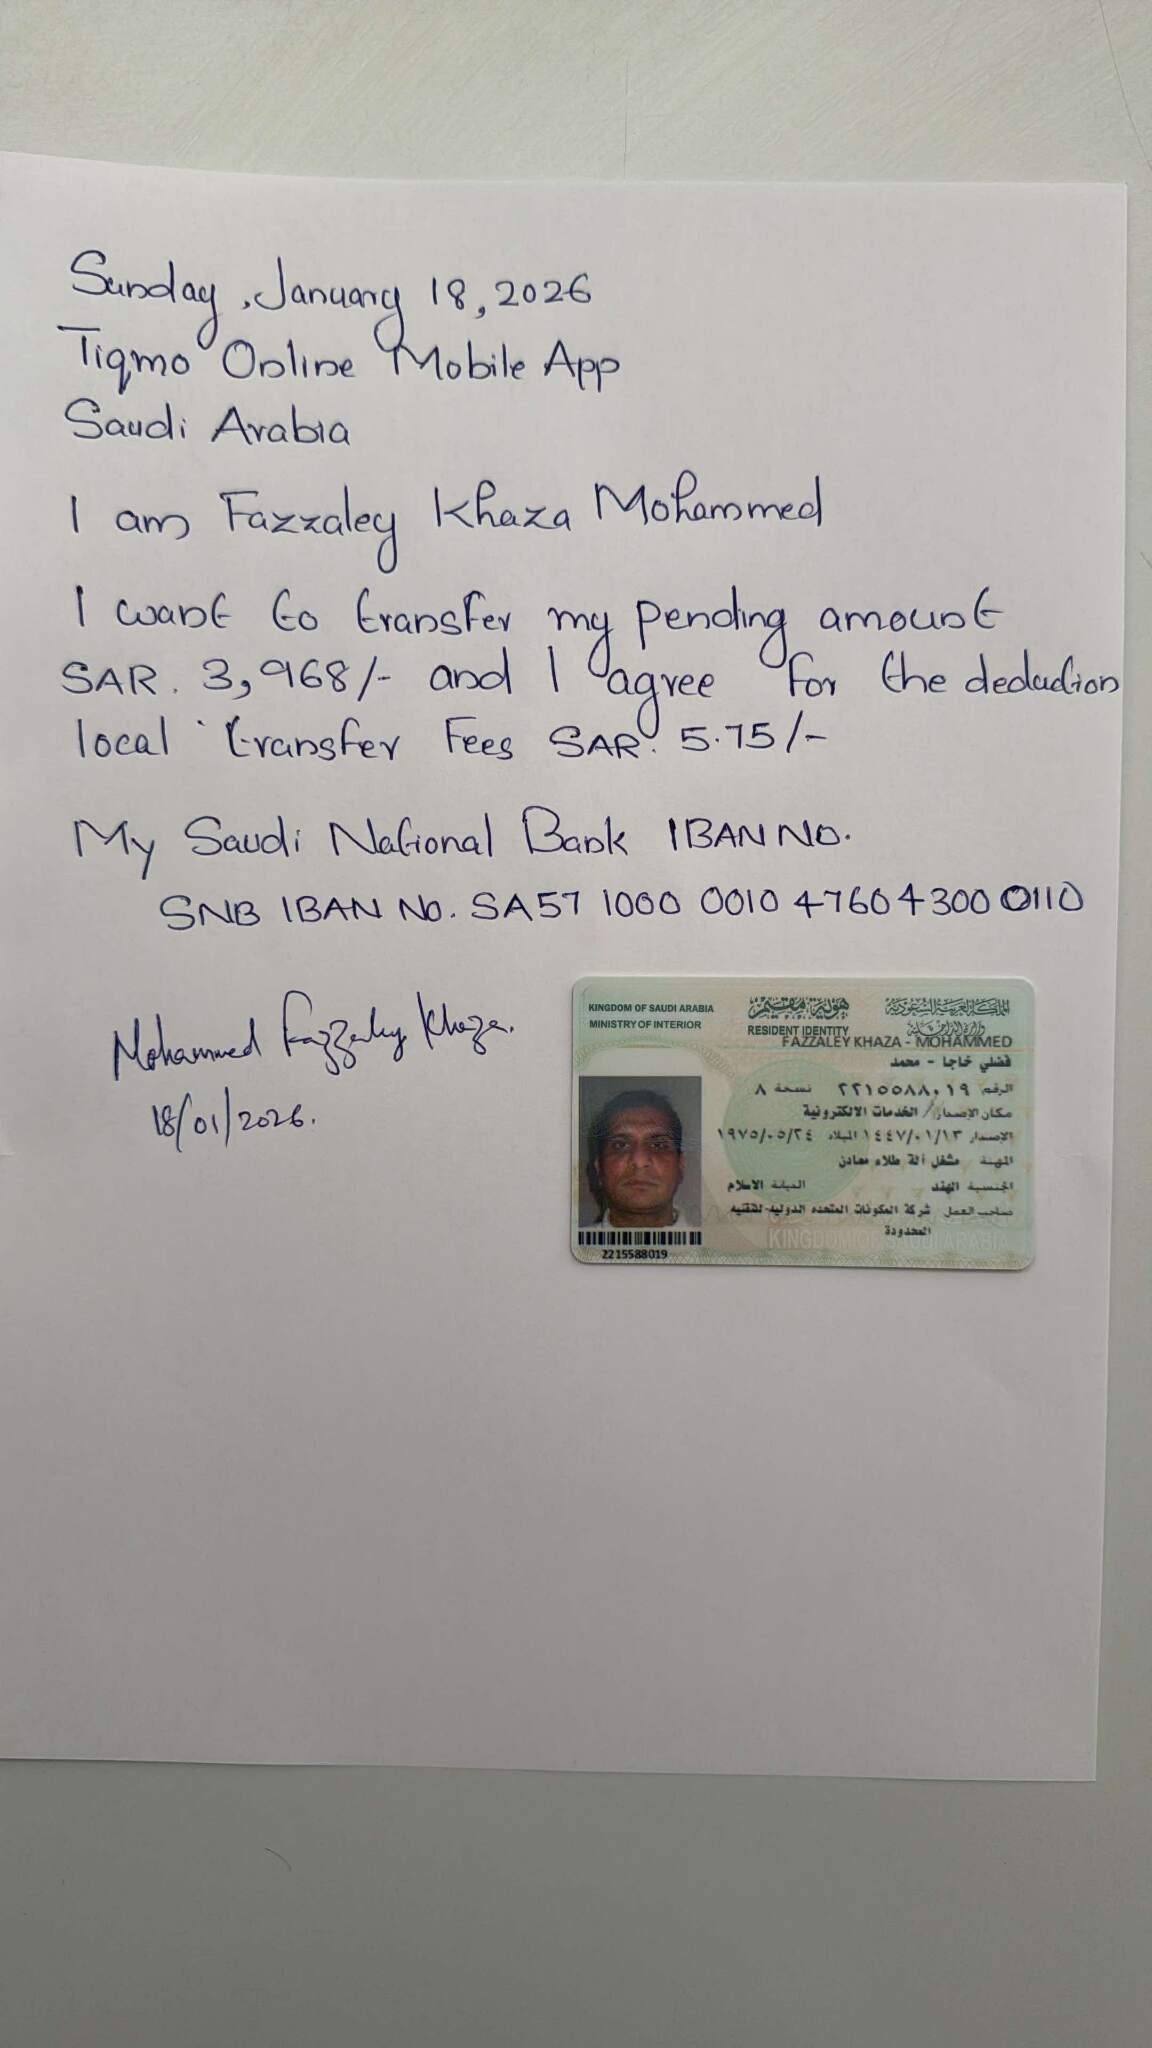 Sunday, January 18, 2026
Tiqmo Online Mobile App
Saudi Arabia
I am Fazzaley Khaza Mohammed
I want to transfer my pending amount
SAR. 3,968/- and I agree for the deduction
local transfer Fees SAR. 5.75/-
My Saudi National Bank IBAN NO.
SNB IBAN No. SA57 1000 0010 4760 4300 0110
Mohammed Fazzaley Khaza.
18/01/2026.
KINGDOM OF SAUDI ARABIA
MINISTRY OF INTERIOR
هوية مقيم
RESIDENT IDENTITY
المملكة العربية السعودية
وزارة الداخلية
FAZZALEY KHAZA - MOHAMMED
فضلي خاجا - محمد
الرقم ٢٢١٥٥٨٨٠١٩ نسخة ٨
مكان الإصدار / الخدمات الالكترونية
الإصدار ١٤٤٧/٠١/١٣ الميلاد ١٩٧٥/٠٥/٢٤
المهنة مشغل آلة طلاء معادن
الجنسية الهند الديانة الاسلام
صاحب العمل شركة المكونات المتحده الدولية-للتقنيه
المحدودة
2215588019
KINGDOM OF SAUDI ARABIA